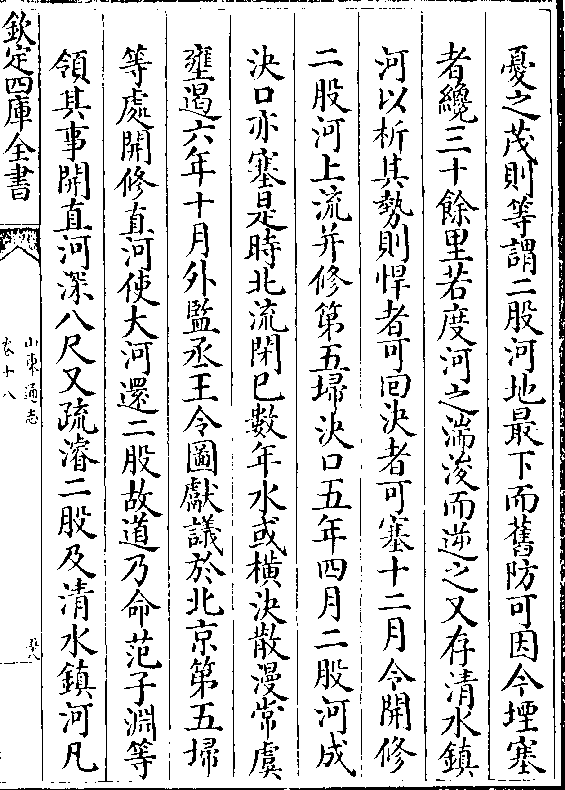 憂之茂則等謂二股河地最下而舊防可因今堙塞
者纔三十餘里若度河之湍浚而逆之又存清水鎮
河以析其勢則悍者可回決者可塞十二月令開修
二股河上流并修第五埽決口五年四月二股河成
決口亦塞是時北流閉已數年水或橫決散漫常虞
壅遏六年十月外監丞王令圖獻議於北京第五埽
等處開修直河使大河還二股故道乃命范子淵等
領其事開直河深八尺又疏濬二股及清水鎮河凡
欽定四庫全書
山東通志
卷十八